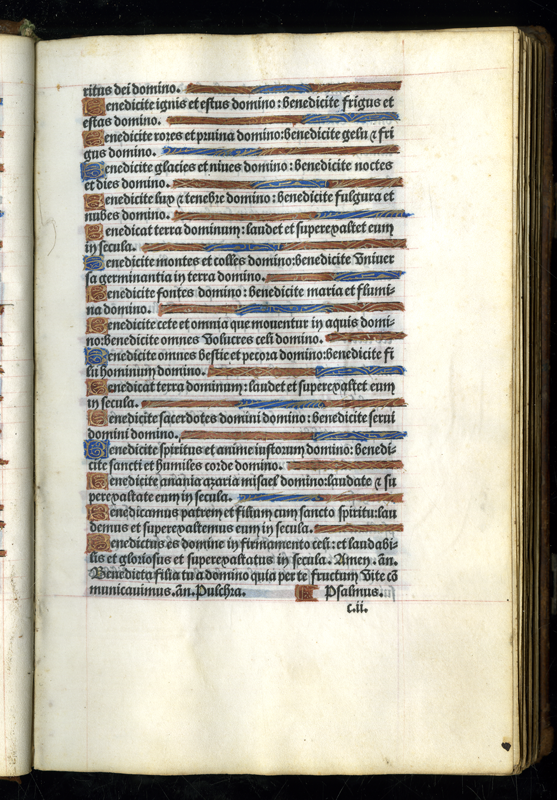 ritus dei domino.
Benedicite ignis et estus domino: benedicite frigus et
estas domino.
Benedicite rores et pruina domino: benedicite gelu ⁊ fri
gus domino.
Benedicite glacies et niues domino: benedicite noctes
et dies domino.
Benedicite lux ⁊ tenebre domino: benedicite fulgura et
nubes domino.
Benedicat terra dominum: laudet et superexaltet eum
in secula.
Benedicite montes et colles domino: benedicite vniuer
sa germinantia in terra domino.
Benedicite fontes domino: benedicite maria et flumi
na domino.
Benedicite cete et omnia que mouentur in aquis domi-
no: benedicite omnes volucres celi domino.
Benedicite omnes bestie et pecora domino: benedicite fi
lii hominum domino.
Benedicat terra dominum: laudet et superexaltet eum
in secula.
Benedicite sacerdotes domini domino: benedicite serui
domini domino.
Benedicite spiritus et anime iustorum domino: benedi-
cite sancti et humiles corde domino.
Benedicite anania azaria misael domino: laudate ⁊ su
perexaltate eum in secula.
Benedicamus patrem et filium cum sancto spiritu: lau
demus et superexaltemus eum in secula.
Benedictus es domine in firmamento celi: et laudabi-
lis et gloriosus et superexaltatus in secula. Amen. añ.
Benedicta filia tu a domino quia per te fructum vite cō
municauimus. añ. Pulchra. Psalmus.
c.ii.